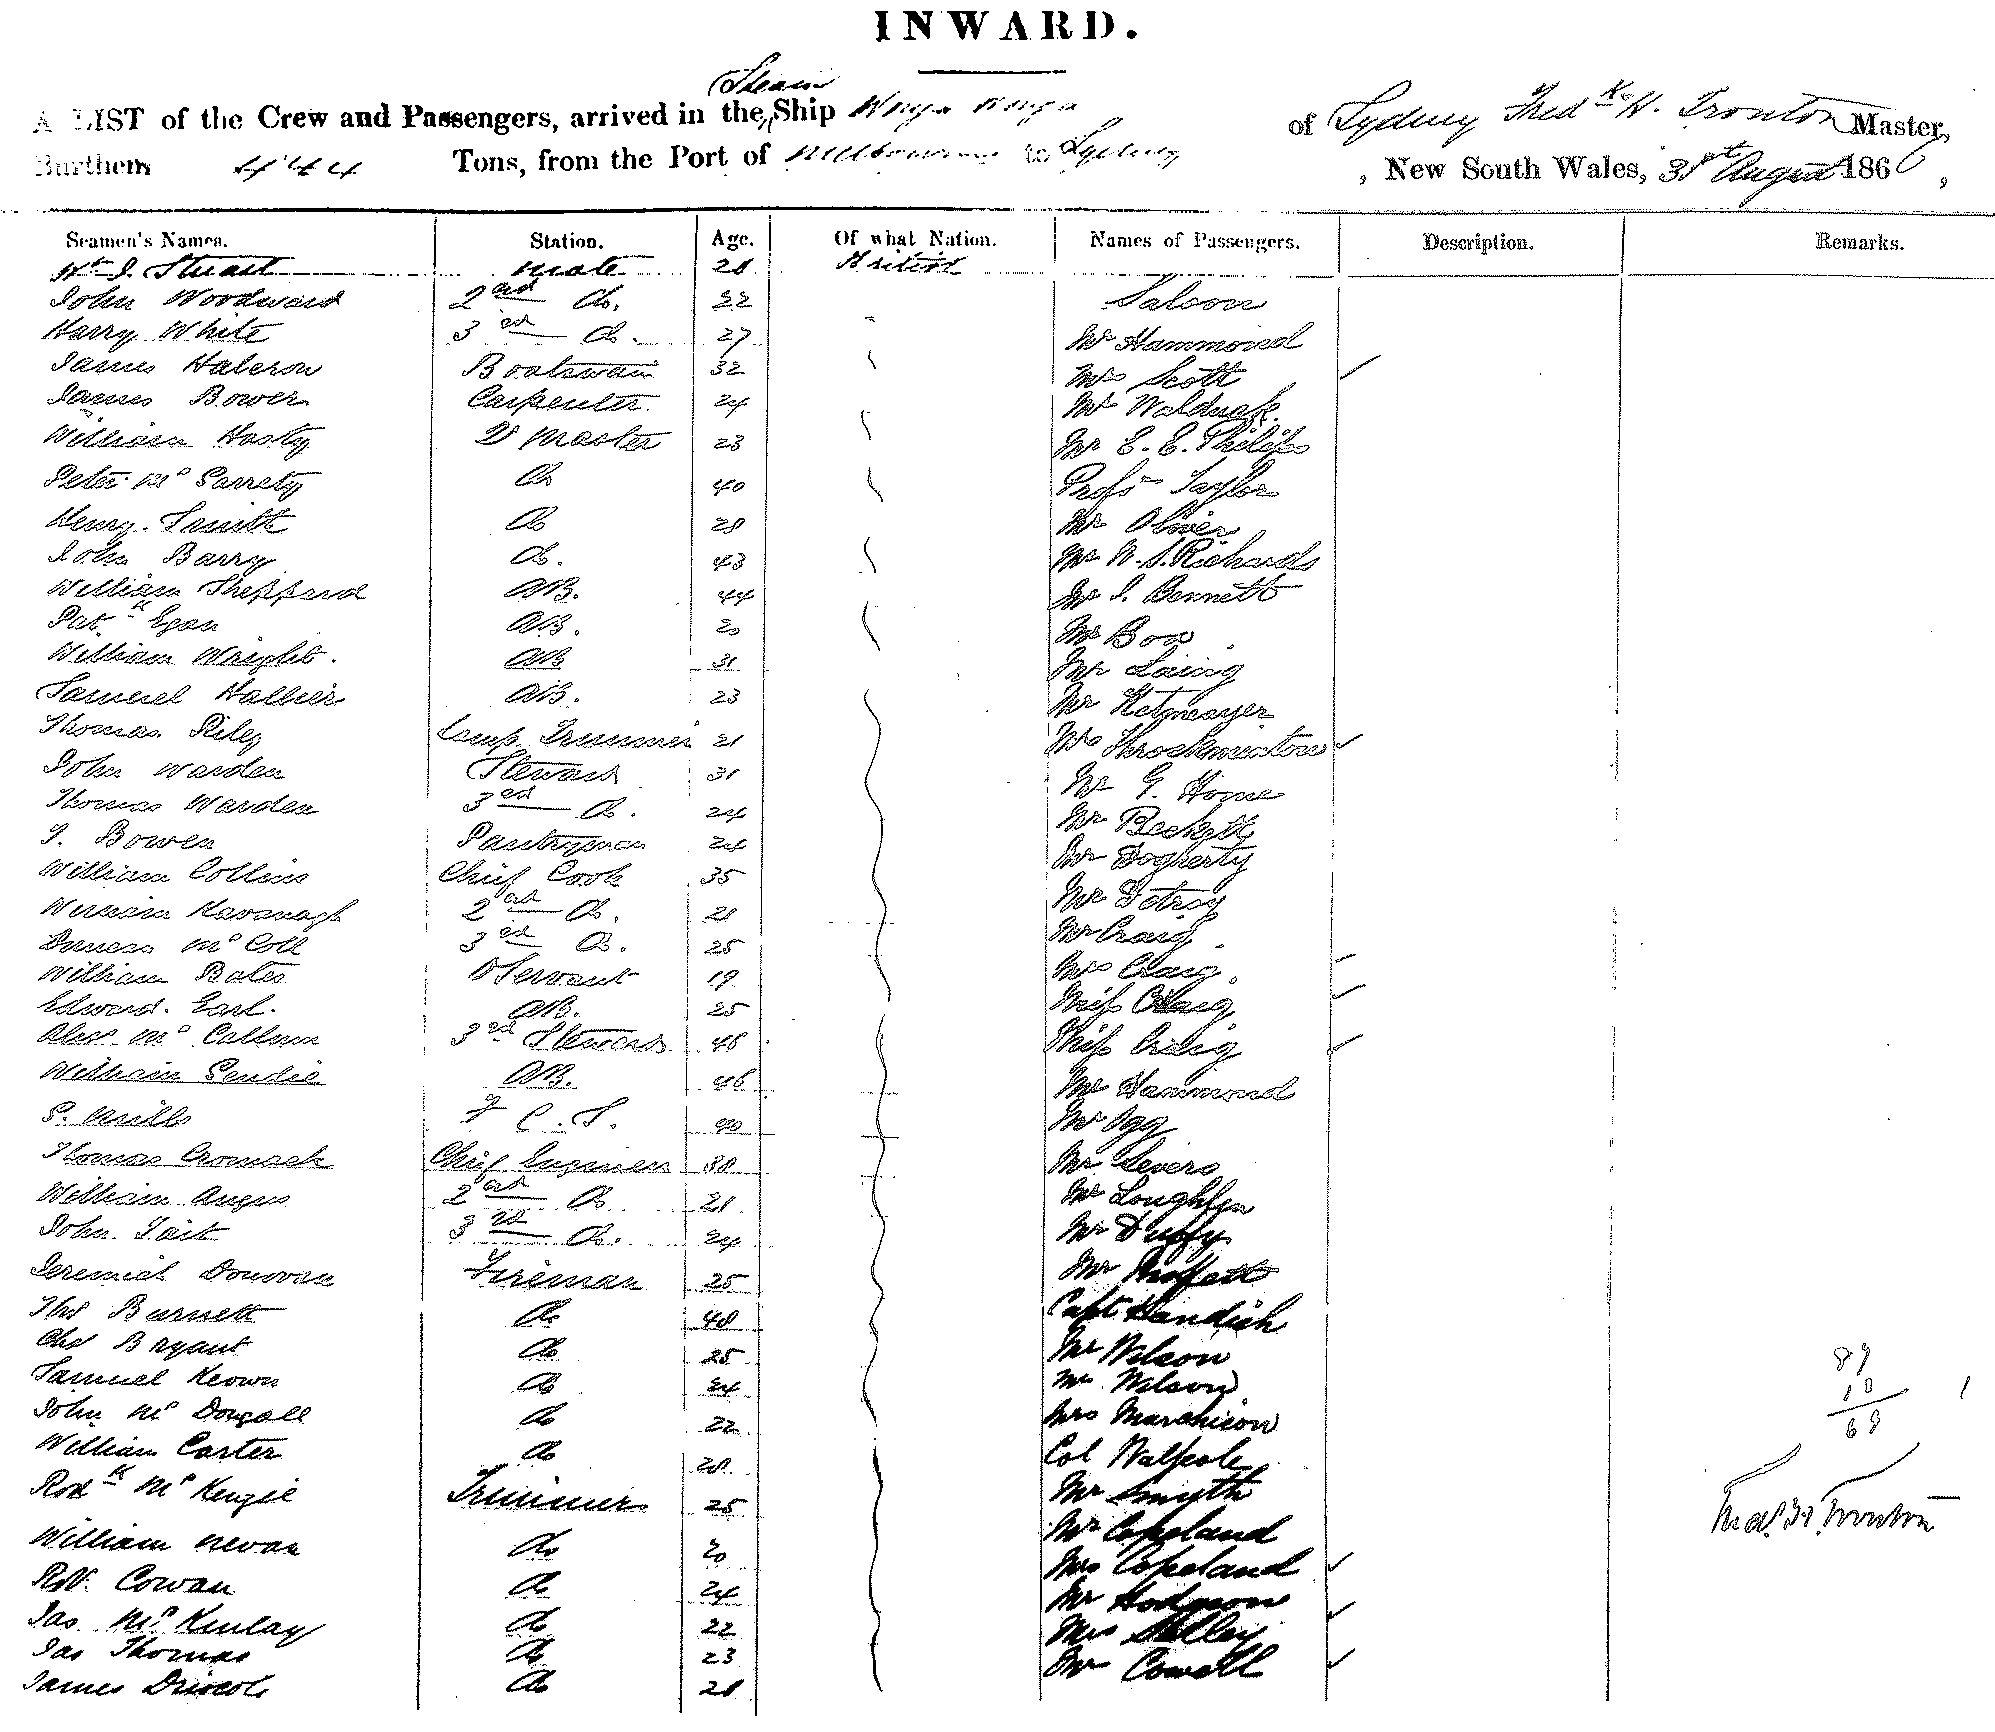 INWARD.
A LIST of the Crew and Passengers, arrived in the Steam Ship Wonga Wonga of Sydney Fredk H. Tronton Master,
Burthem 444 Tons, from the Port of Melbourne to Sydney, New South Wales, 31st August 186
Seamen's Names. Station. Age. Of what Nation. Names of Passengers. Description. Remarks.
Wm J. Stuart mate 28 British
John Woodward 2nd Do. 22 Saloon
Harry White 3rd Do. 27 Mr Hammond
James Halcrow Boatswain 32 Mrs Scott
James Bower Carpenter 24 Mr
William Hasty Qr Master 23 Mr E. E. Philips
Peter Mc Garrety Do 40 Profr Taylor
Henry Smith Do 28 Mr Oliver
John Barry Do. 43 Mr W. S. Richards
William Sheppard AB. 44 Mr J. Bennett
Patk Egan AB. 20 Mr Box
William Wright. AB 31 Mr Laing
Samuel Hallier AB. 23 Mr
Thomas Riley Lamp Trimmer 21 Mrs Throckmorton
John Warden Steward 31 Mr G. Horne
Thomas Warden 3rd Do. 24 Mr Beckett
J. Bowen Pantryman 24 Mr Dogherty
William Collins Chief Cook 35 Mr
William Kavanagh 2nd Do. 21 Mr Craig
Duncan Mc Coll 3rd Do. 25 Mrs Craig
William Bates Servant 19 Miss Craig
Edward Earl. AB. 25 Miss Craig
Alexr Mc Callum 3rd Steward 48 Mr Hammond
William Pendie AB. 46 Mr Ogg
S. Mills F. C. S. 40 Mr Severs
Thomas Cromack Chief Engineer 38 Mr Loughlyn
William Angus 2nd Do 28 Mr Duffy
John Tait 3rd Do. 24 Mr Moffatt
Jeremiah Donovan Fireman 25 Capt Standish
Thos Burnett Do 48 Mr Wilson
Chs Bryant Do 25 Mr Wilson
Samuel Keown Do 24 Mrs Murchison
John Mc Dougall Do 22 Col Walpole
William Carter Do 28 Mr Smyth
Rodk Mc Kenzie Trimmer 25 Mr Copeland
William Nevan Do 20 Mrs Copeland
Robt. Cowan Do 24 Mr Hodgson
Jas Mc Kinlay Do 22 Mrs Kelley
Jas Thomas Do 23 Mr Cowell
James Driscoll Do 28
89
18
68
Fredk H Tronton